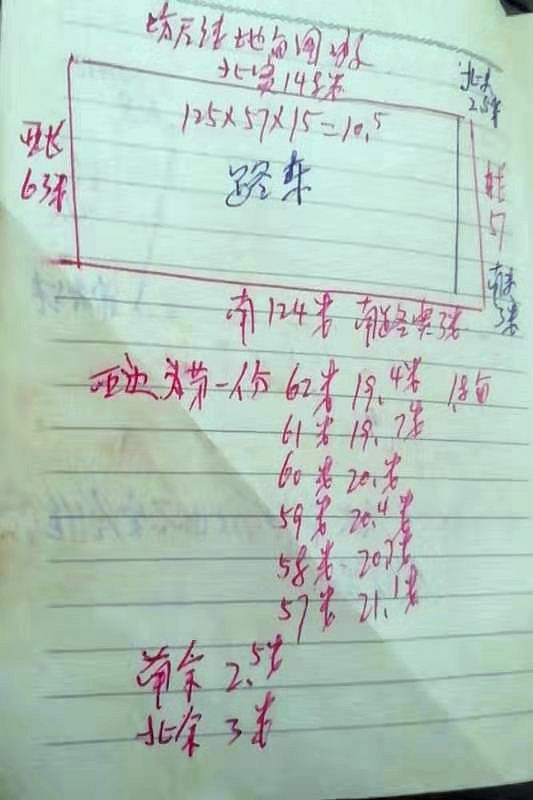 地
北宽148米
北余
2.5米
125×57×15=10.5
西长
63米
路东
东长
57
南余
3米
南124米 南路宽3米
西边头第一份 62米 19.4米 1.8亩
61米 19.7米
60米 20.米
59米 20.4米
58米 20.7米
57米 21.1米
南余 2.5米
北余 3米